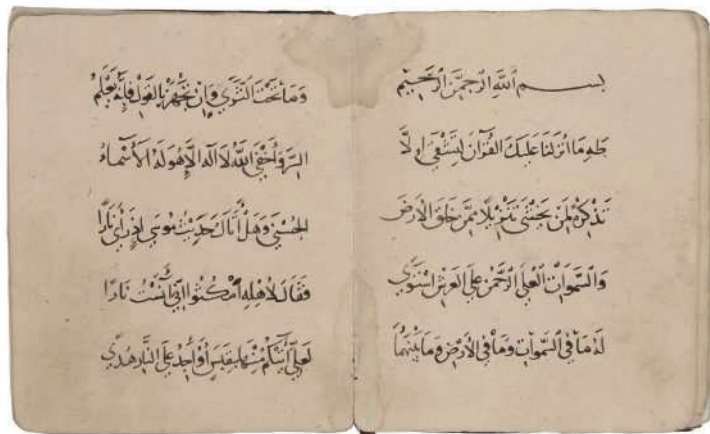 بسم الله الرحمن الرحيم
طه ما انزلنا عليك القرآن لتشقى الا
تذكرة لمن يخشى تنزيلا ممن خلق الارض
والسموات العلى الرحمن على العرش استوى
له ما في السموات وما في الارض وما بينهما
وما تحت الثرى وان تجهر بالقول فانه يعلم
السر وأخفى الله لا اله الا هو له الاسماء
الحسنى وهل أتاك حديث موسى اذ رأى نارا
فقال لاهله امكثوا انى آنست نارا
لعلى آتيكم منها بقبس أو أجد على النار هدى